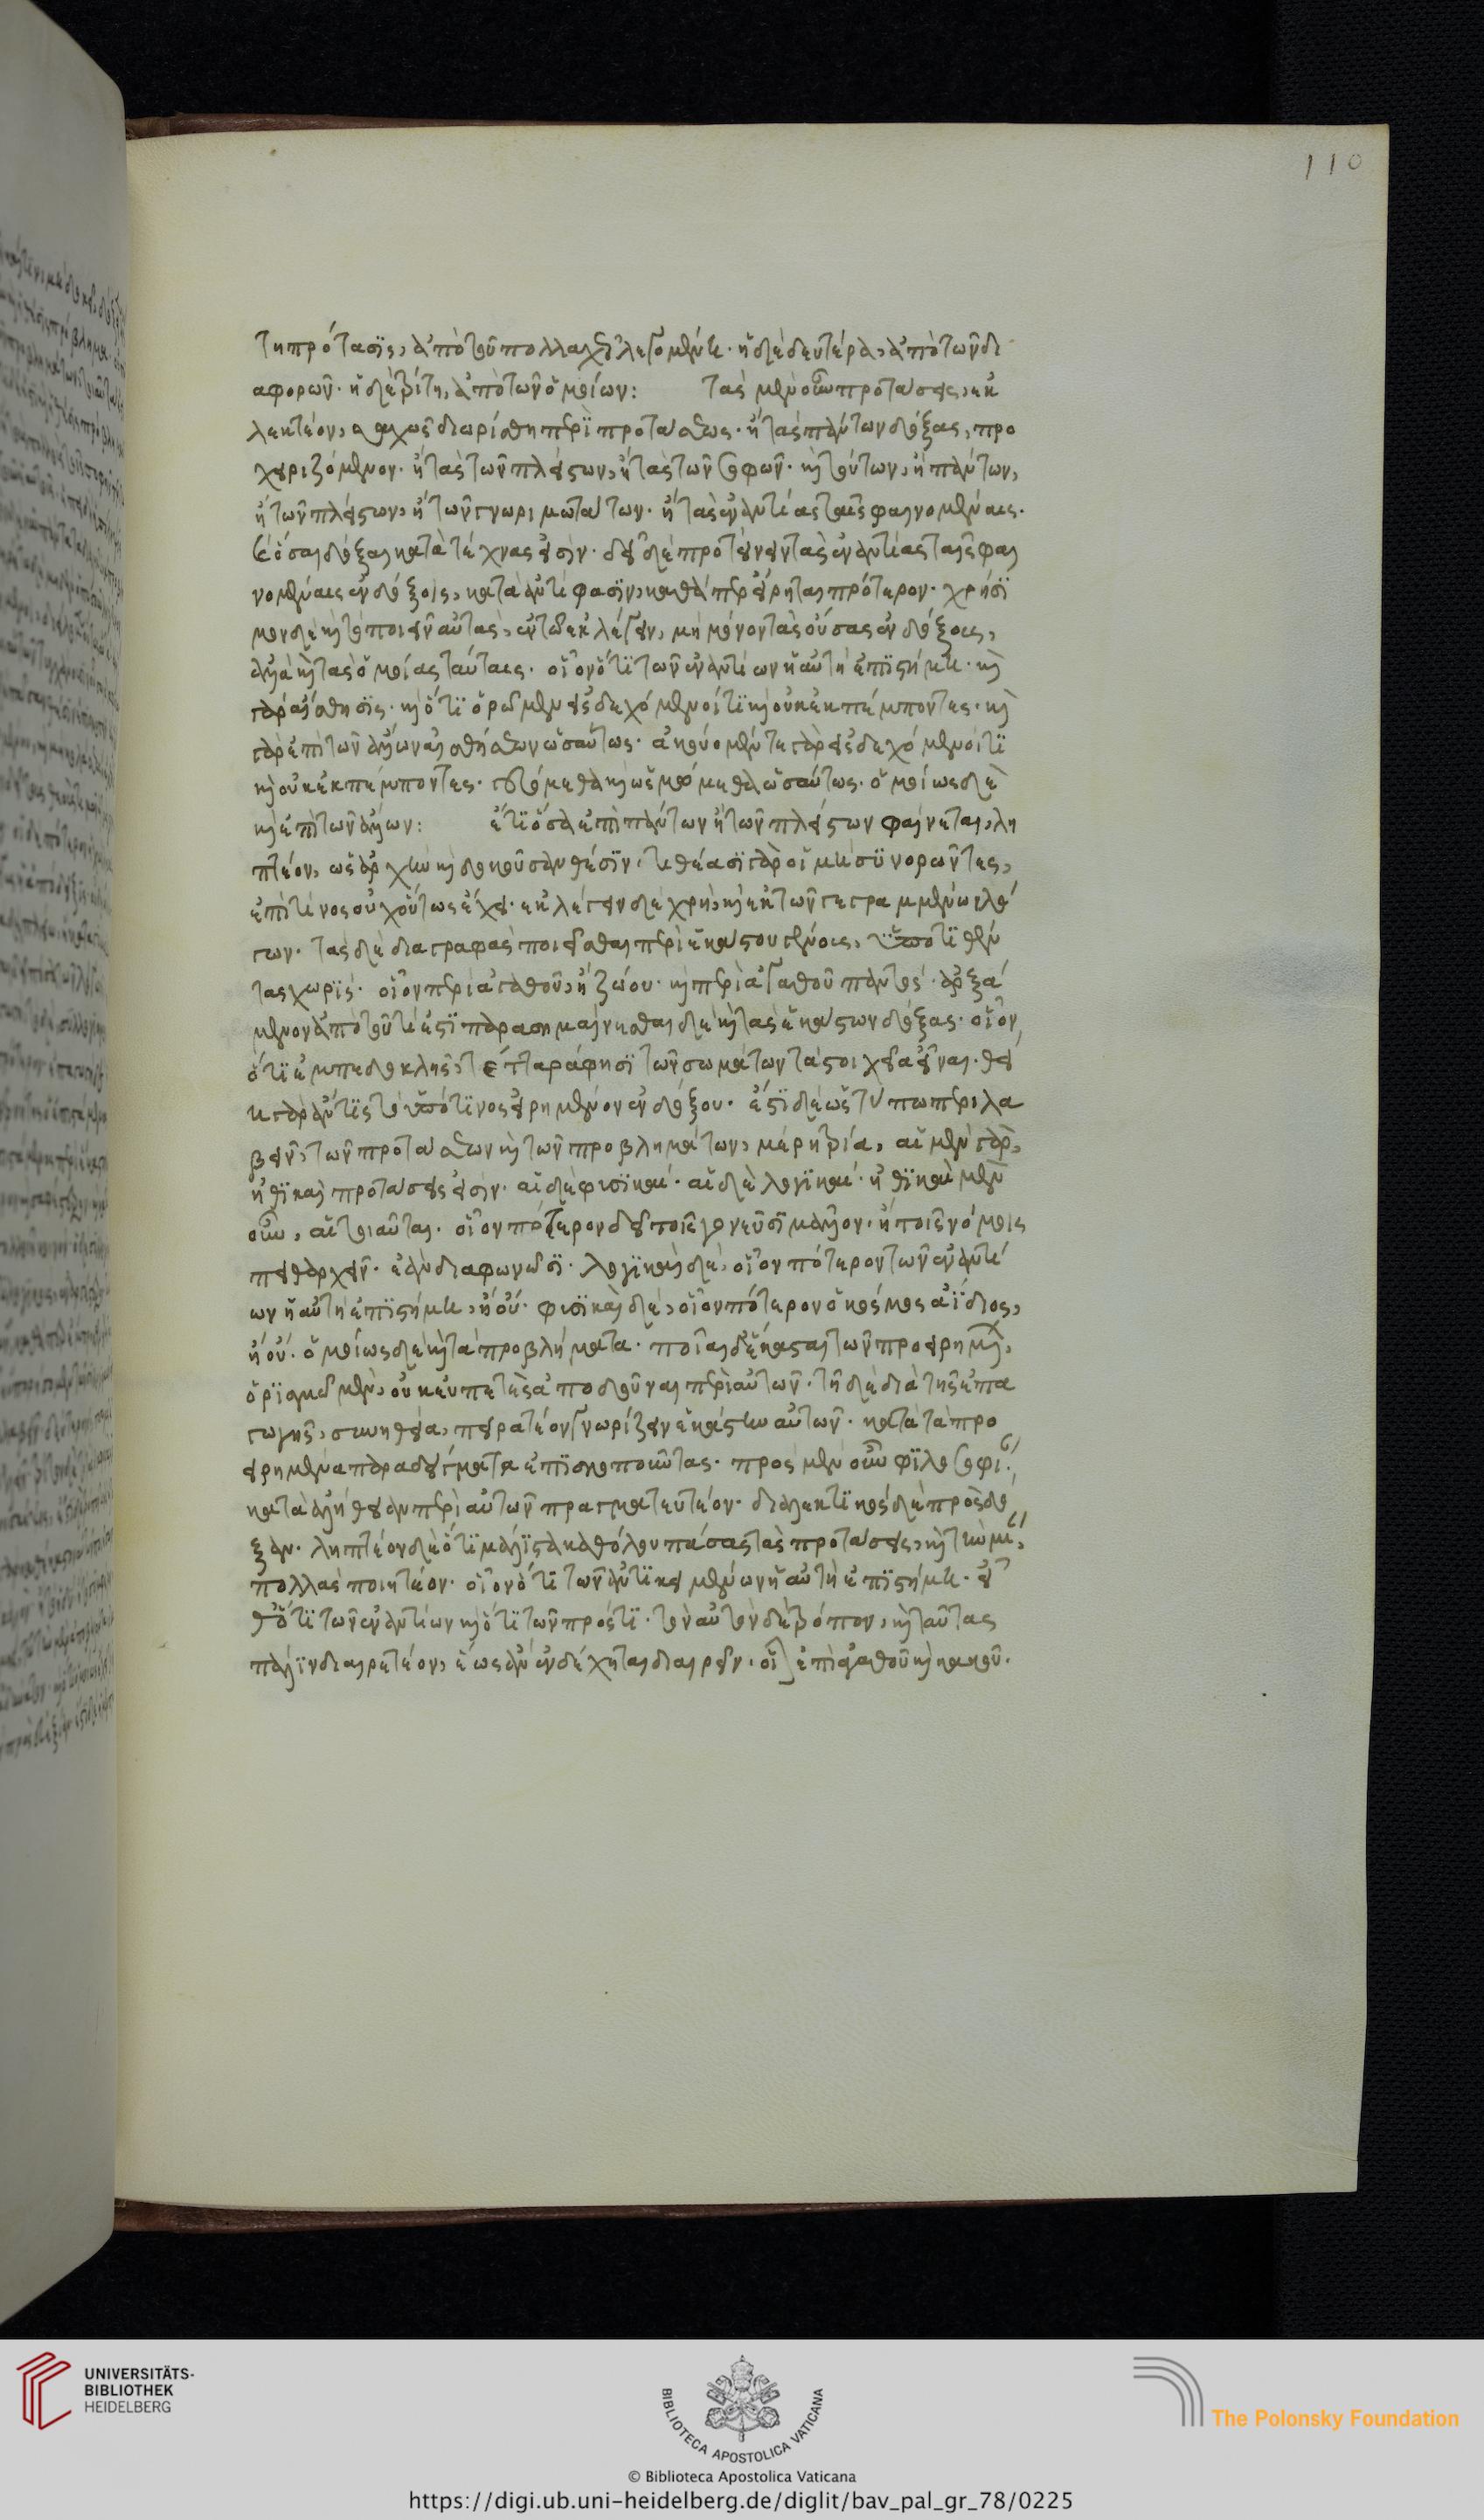 110
τη πρότασις, ἀπὸ τοῦ πολλαχῶς λεγομένου· ἡ δὲ δευτέρα, ἀπὸ τῶν δι
αφορῶν· ἡ δὲ τρίτη, ἀπὸ τῶν ὁμοίων: τὰς μὲν οὖν προτάσεις, ἐκ
λεκτέον, ὁσαχῶς διωρίσθη περὶ προτάσεως· ἢ τὰς πάντων δόξας, προ
χειριζόμενον· ἢ τὰς τῶν πλείστων, ἢ τὰς τῶν σοφῶν· καὶ τούτων, ἢ πάντων,
ἢ τῶν πλείστων, ἢ τῶν γνωριμωτάτων· ἢ τὰς ἐναντίας ταῖς φαινομέναις·
καὶ ὅσαι δόξαι κατὰ τέχνας εἰσίν· δεῖ δὲ προτείνειν τὰς ἐναντίας ταῖς φαι
νομέναις ἐνδόξοις, κατὰ ἀντίφασιν, καθάπερ εἴρηται πρότερον· χρήσι
μον δὲ καὶ τὸ ποιεῖν αὐτὰς, ἐν τῶ ἐκλέγειν, μὴ μόνον τὰς οὔσας ἐνδόξους,
ἀλλὰ καὶ τὰς ὁμοίας ταύταις· οἷον ὅτι τῶν ἐναντίων ἡ αὐτὴ ἐπιστήμη· καὶ
γὰρ αἴσθησις· καὶ ὅτι ὁρῶμεν εἰσδεχόμενοί τι καὶ οὐκ ἐκπέμποντες· καὶ
γὰρ ἐπὶ τῶν ἄλλων αἰσθήσεων ὡσαύτως· ἀκούομέν τε γὰρ εἰσδεχόμενοί τι
καὶ οὐκ ἐκπέμποντες· γευόμεθα καὶ ὀσμώμεθα ὡσαύτως· ὁμοίως δὲ
καὶ ἐπὶ τῶν ἄλλων: ἔτι ὅσα ἐπὶ πάντων ἢ τῶν πλείστων φαίνεται, λη
πτέον, ὡς ἀρχὴν καὶ δοκοῦσαν θέσιν· τιθέασι γὰρ οἱ μὴ συνορῶντες,
ἐπὶ τίνος οὐχ οὕτως ἔχει· ἐκλέγειν δὲ χρὴ, καὶ ἐκ τῶν γεγραμμένων λό
γων· τὰς δὲ διαγραφὰς ποιεῖσθαι περὶ ἑκάστου γένους, ὑποτιθέν
τας χωρὶς· οἷον περὶ ἀγαθοῦ, ἢ ζώου· καὶ περὶ ἀγαθοῦ παντὸς· ἀρξά
μενον ἀπὸ τοῦ τί ἐστι παρασημαίνεσθαι δὲ καὶ τὰς ἑκάστων δόξας· οἷον
ὅτι ἐμπεδοκλῆς, τέτταρα ἔφησε τῶν σωμάτων τὰ στοιχεῖα εἶναι· θεί
η γὰρ ἄν τις τὸ ὑπό τινος εἰρημένον ἐνδόξου· ἔστι δὲ ὡς τύπω περιλα
βεῖν, τῶν προτάσεων καὶ τῶν προβλημάτων, μέρη τρία, αἱ μὲν γὰρ,
ἠθικαὶ προτάσεις εἰσίν· αἱ δὲ φυσικαί· αἱ δὲ λογικαί· ἠθικαὶ μὲν
οὖν, αἱ τοιαῦται· οἷον πότερον δεῖ τοῖς γονεῦσι μᾶλλον· ἢ τοῖς νόμοις
πειθαρχεῖν· ἐὰν διαφωνῶσι· λογικαὶ δὲ, οἷον πότερον τῶν ἐναντί
ων ἡ αὐτὴ ἐπιστήμη, ἢ οὔ· φυσικαὶ δὲ, οἷον πότερον ὁ κόσμος ἀΐδιος,
ἢ οὔ· ὁμοίως δὲ καὶ τὰ προβλήματα· ποῖαι δ' ἕκασται τῶν προειρημένων,
ὁρισμῶ μὲν, οὐκ εὐπετὲς ἀποδοῦναι περὶ αὐτῶν· τῇ δὲ διὰ τῆς ἐπα
γωγῆς, συνηθεία, πειρατέον γνωρίζειν ἑκάστην αὐτῶν· κατὰ τὰ προ
ειρημένα παραδείγματα ἐπισκοποῦντας· πρὸς μὲν οὖν φιλοσοφίαν,
κατὰ ἀλήθειαν περὶ αὐτῶν πραγματευτέον· διαλεκτικῶς δὲ πρὸς δό
ξαν· ληπτέον δὲ ὅτι μάλιστα καθόλου πάσας τὰς προτάσεις, καὶ τὴν μίαν,
πολλὰς ποιητέον· οἷον ὅτι τῶν ἀντικειμένων ἡ αὐτὴ ἐπιστήμη· εἶ
θ' ὅτι τῶν ἐναντίων καὶ ὅτι τῶν πρός τι· τὸν αὐτὸν δὲ τρόπον, καὶ ταύτας
πάλιν διαιρετέον, ἕως ἂν ἐνδέχηται διαιρεῖν· οἷον ἐπὶ ἀγαθοῦ καὶ κακοῦ·
UNIVERSITÄTS-
BIBLIOTHEK
HEIDELBERG
BIBLIOTECA APOSTOLICA VATICANA
The Polonsky Foundation
© Biblioteca Apostolica Vaticana
https://digi.ub.uni-heidelberg.de/diglit/bav_pal_gr_78/0225